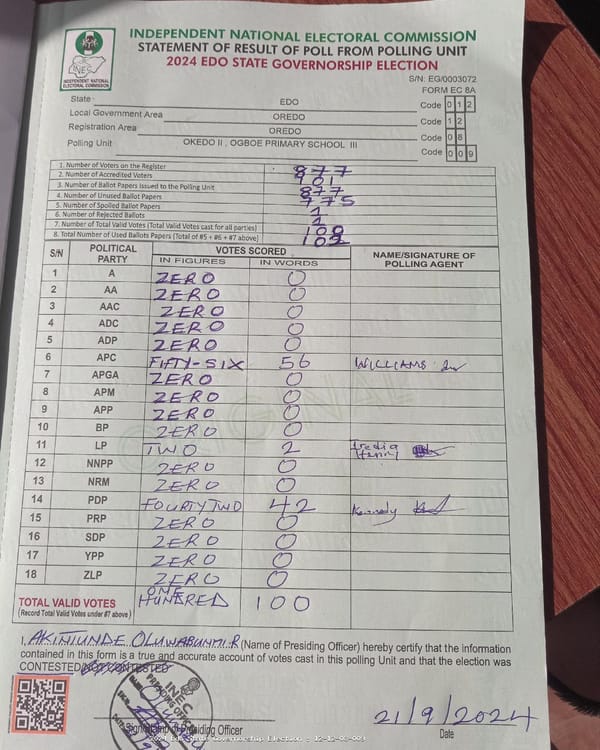 INDEPENDENT NATIONAL ELECTORAL COMMISSION
STATEMENT OF RESULT OF POLL FROM POLLING UNIT
2024 EDO STATE GOVERNORSHIP ELECTION
INEC
INDEPENDENT NATIONAL ELECTORAL COMMISSION
S/N: EG/0003072
FORM EC 8A
State EDO Code 0 1 2
Local Government Area OREDO Code 1 2
Registration Area OREDO Code 0 8
Polling Unit OKEDO II , OGBOE PRIMARY SCHOOL III Code 0 0 9
1. Number of Voters on the Register 877
2. Number of Accredited Voters 101
3. Number of Ballot Papers Issued to the Polling Unit 877
4. Number of Unused Ballot Papers 775
5. Number of Spoiled Ballot Papers 1
6. Number of Rejected Ballots 1
7. Number of Total Valid Votes (Total Valid Votes cast for all parties) 100
8. Total Number of Used Ballots Papers (Total of #5 + #6 + #7 above) 102
S/N POLITICAL PARTY VOTES SCORED NAME/SIGNATURE OF POLLING AGENT
IN FIGURES IN WORDS
1 A ZERO 0
2 AA ZERO 0
3 AAC ZERO 0
4 ADC ZERO 0
5 ADP ZERO 0
6 APC FIFTY-SIX 56 WILLIAMS
7 APGA ZERO 0
8 APM ZERO 0
9 APP ZERO 0
10 BP ZERO 0
11 LP TWO 2 Iredia Henry
12 NNPP ZERO 0
13 NRM ZERO 0
14 PDP FOURTY TWO 42 Kennedy
15 PRP ZERO 0
16 SDP ZERO 0
17 YPP ZERO 0
18 ZLP ZERO 0
TOTAL VALID VOTES ONE HUNDRED 100
(Record Total Valid Votes under #7 above)
I, AKINLUNDE OLUWABUNMI R (Name of Presiding Officer) hereby certify that the information
contained in this form is a true and accurate account of votes cast in this polling Unit and that the election was
CONTESTED/NOT CONTESTED
INEC
Signature of Presiding Officer
21/9/2024
Date
2024 Edo State Governorship Election - 12-12-08-009